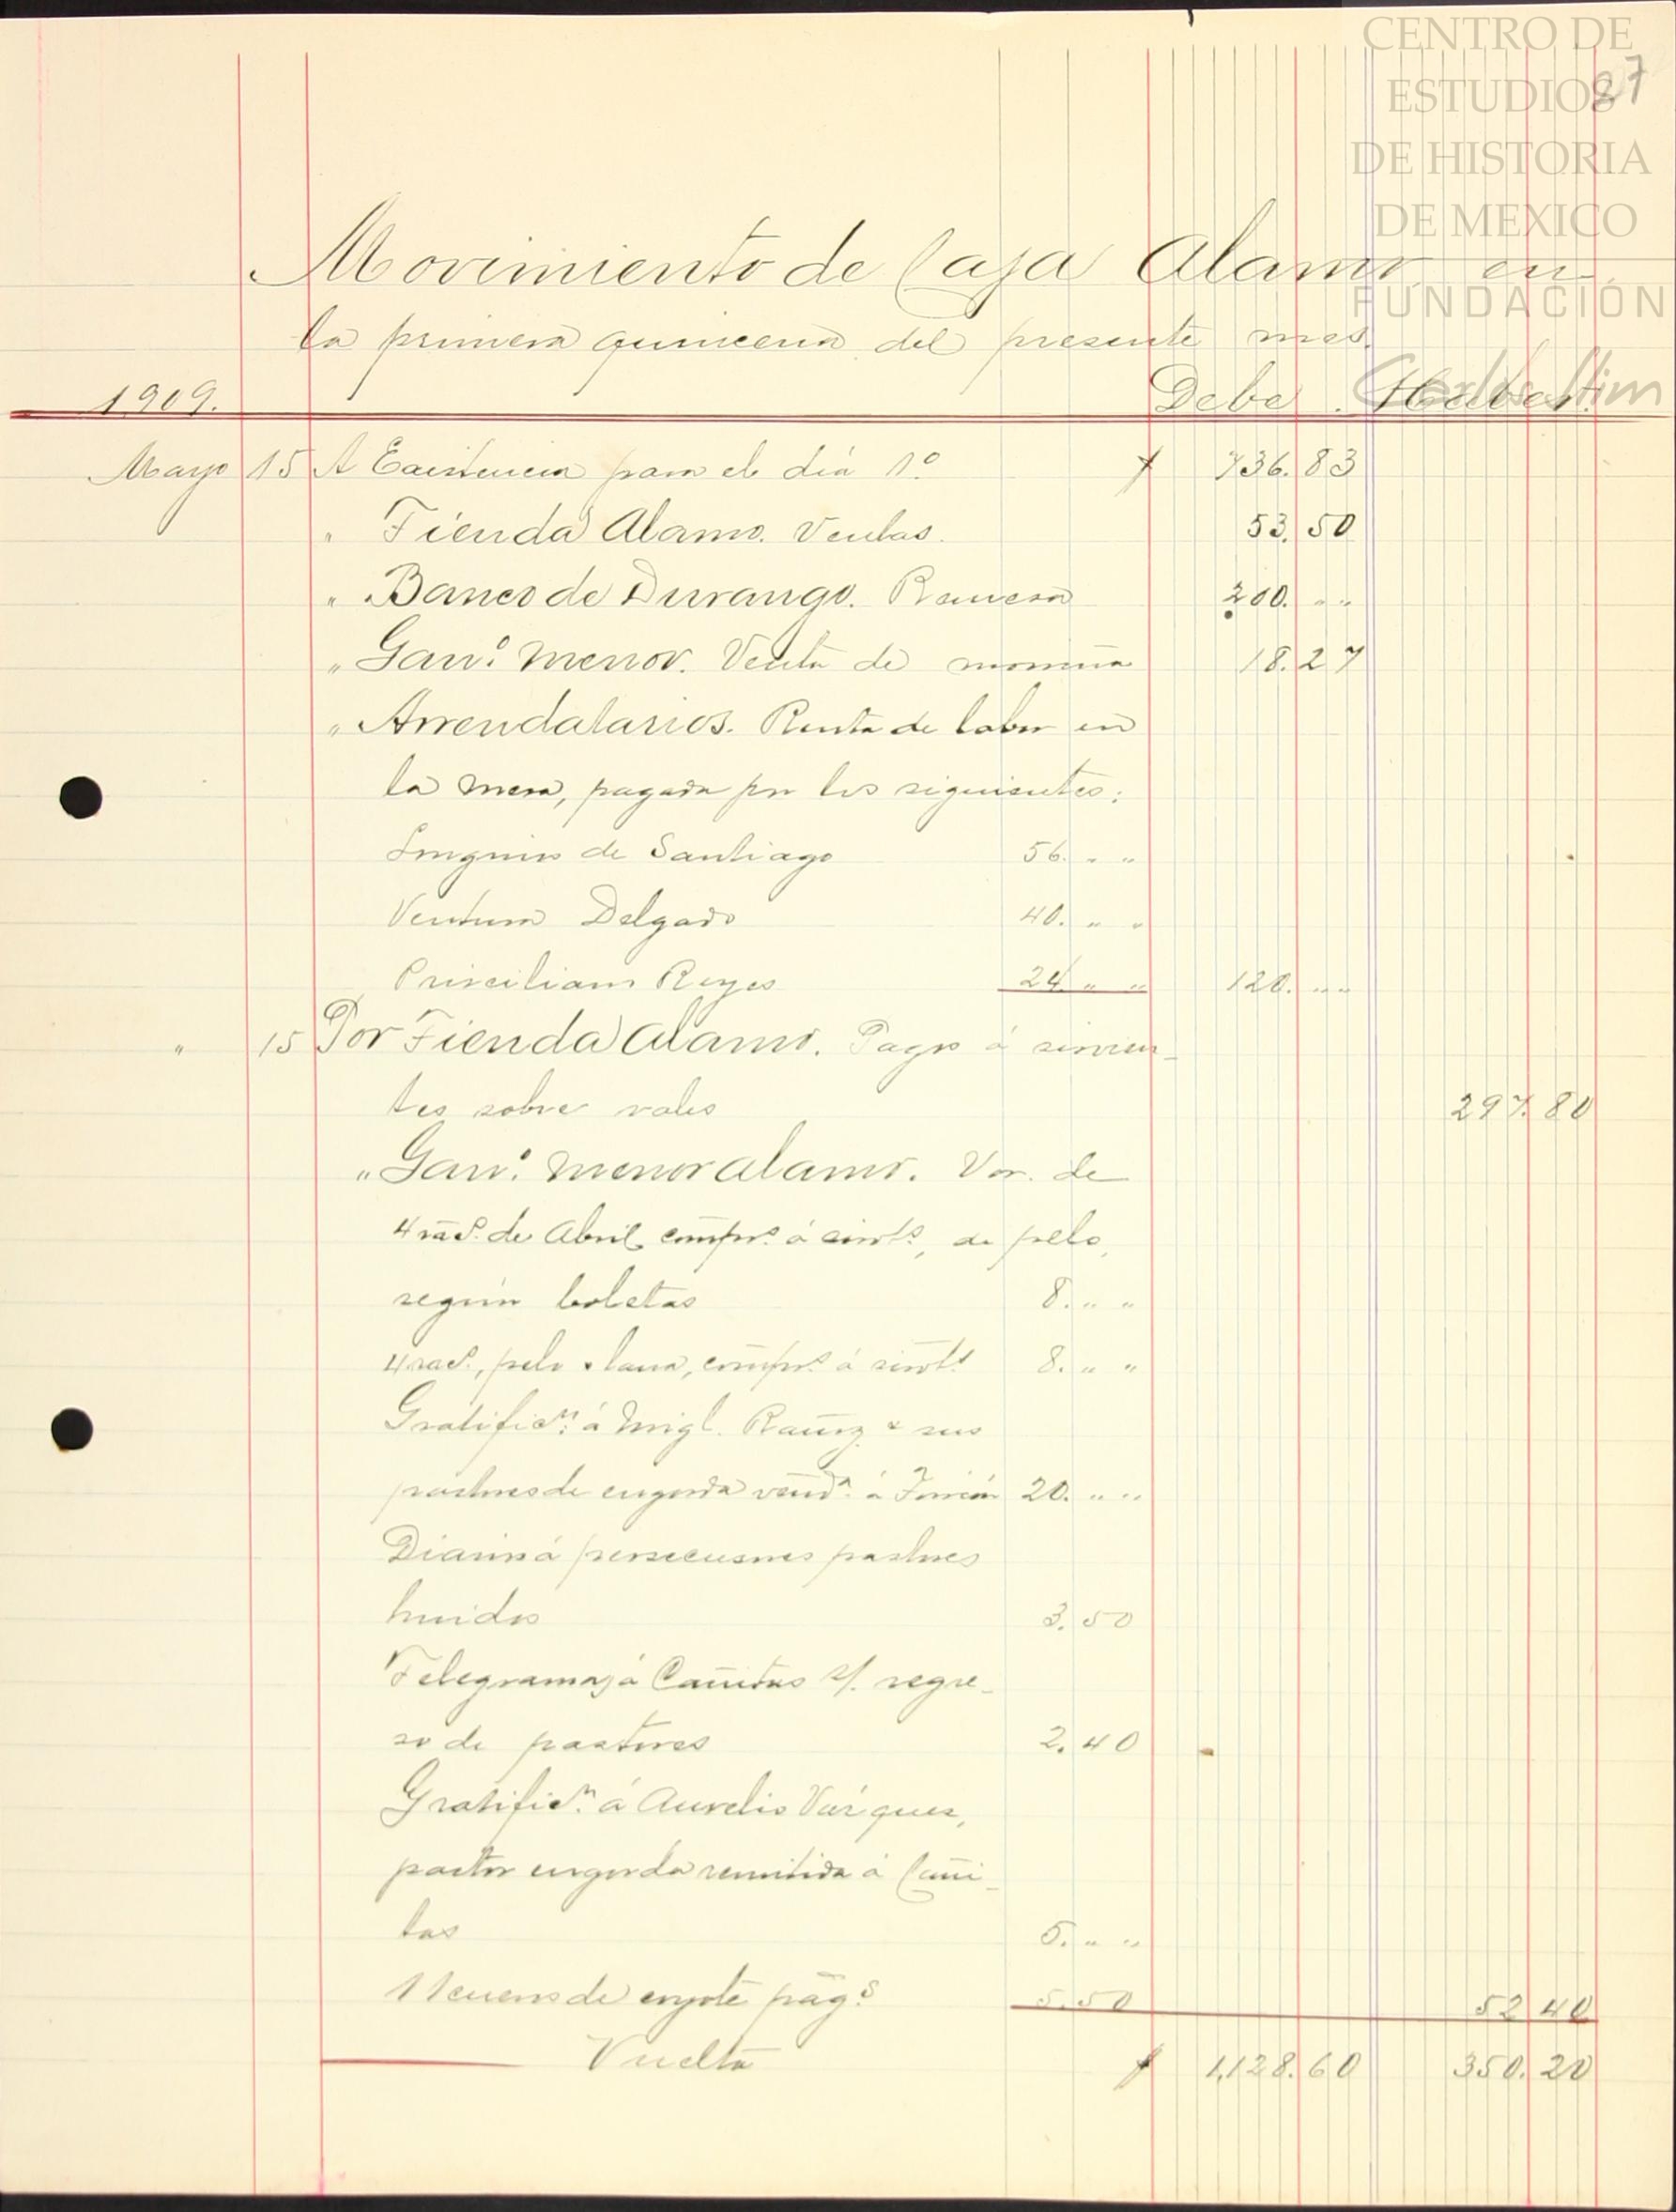 CENTRO DE
ESTUDIOS
DE HISTORIA
DE MEXICO
FUNDACIÓN
Carlos Slim
27
Movimiento de Caja Alamo en
la primera quincena del presente mes.
1909. Debe Haber.
Mayo 15 A Existencia para el día 1º $ 736.83
" Tienda Alamo. Ventas. 53.50
" Banco de Durango. Remesa 200. " "
" Ganº menor. Venta de 18.27
" Arrendatarios. Renta de labor en
la mesa, pagada por los siguientes:
de Santiago 56. " "
Ventura Delgado 40. " "
Prisciliano Reyes 24 " " 120. " "
" 15 Por Tienda Alamo. Pagos á sirvien-
tes sobre vales 297.80
" Ganº menor Alamo. Vor. de
4 de Abril, á de pelo,
según boletas 8. " "
4 pelo y lana, á 8. " "
Gratificn. á Migl. Ramz. y sus
pastores de engorda vendª á 20. " "
pastores
huidos 3.50
Telegramas á Cañitas s/. regre-
so de pastores 2.40
Gratificn. á Aurelio Vázquez,
pastor engorda remitida á Cañi-
tas 5. " "
11 cueros de coyote pags 5.50 52.40
Vuelta $ 1,128.60 350.20